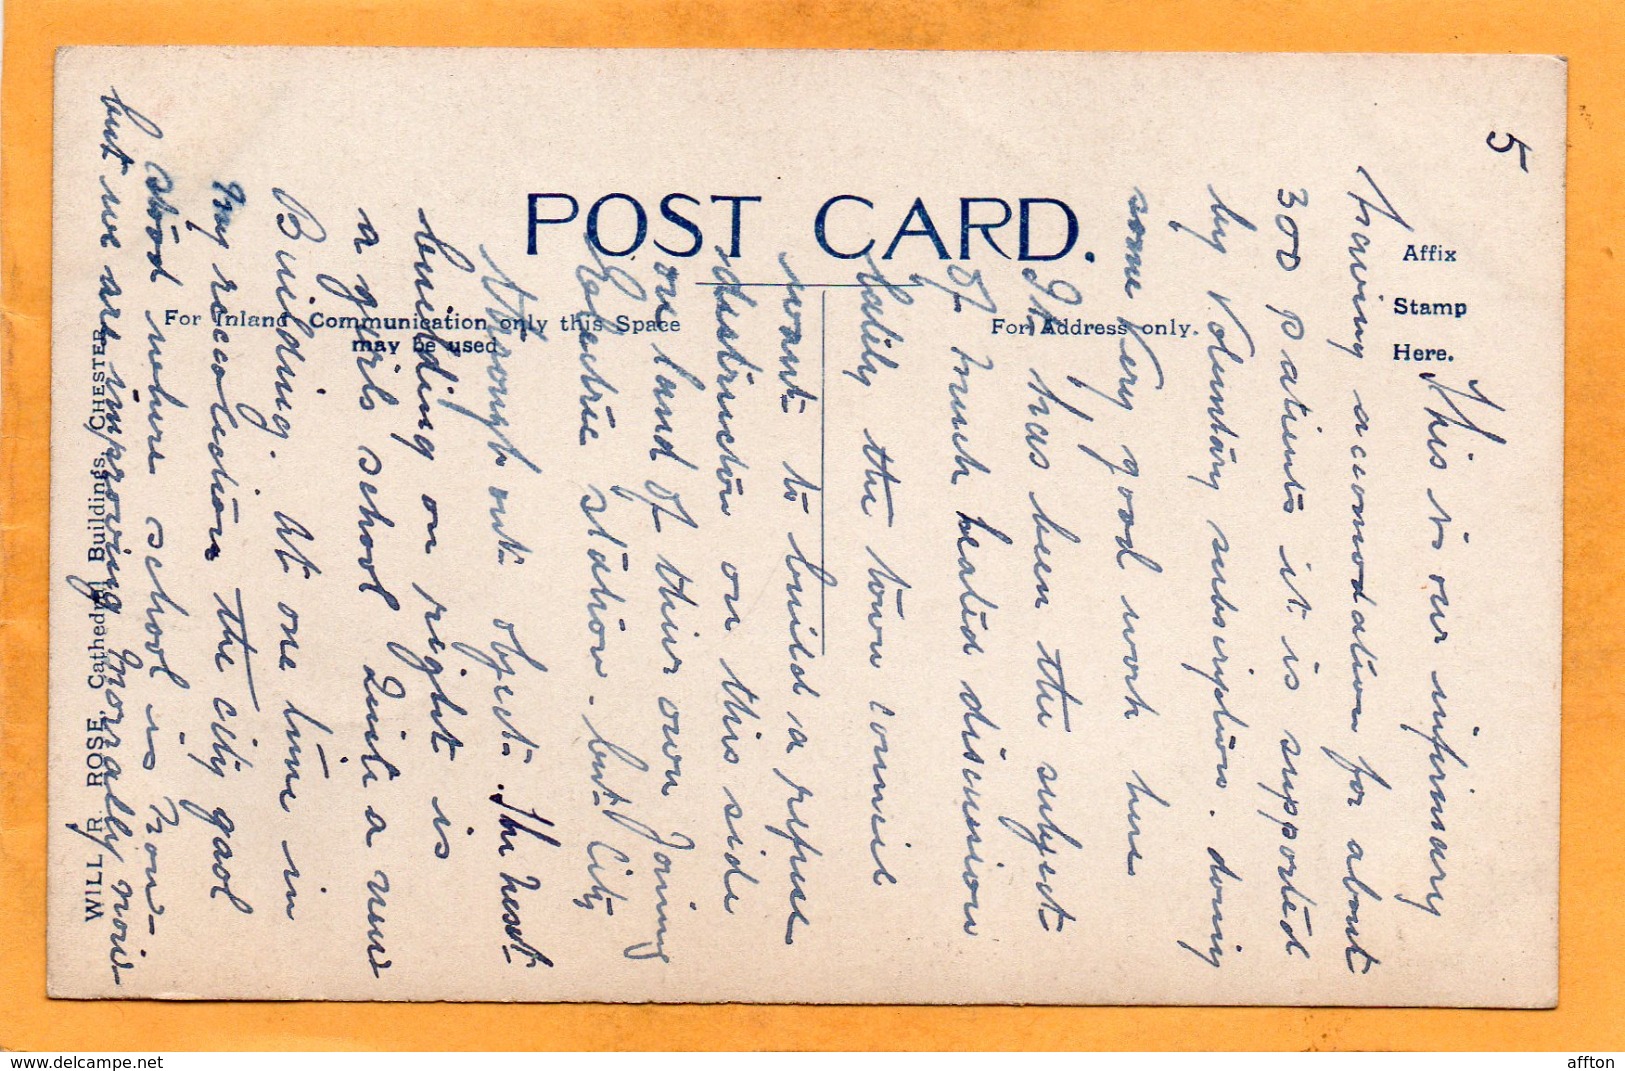 POST CARD.
For Inland Communication only this Space
may be used.
For Address only.
Affix
Stamp
Here.
WILL R. ROSE, Cathedral Buildings, CHESTER
5
This is our infirmary
having accomodation for about
300 patients it is supported
by Voluntary subscriptions. doing
some Very good work here
It has been the subject
of much heated discussion
lately the town councie
want to build a refuse
destructor on this side
on land of their own Joining
Electric station. but City
through out object. The next
building on right is
a girls school Quite a new
Building. at one time in
my reccolection the city gaol
stood where school is now
but we are improving morrally now
affton
delcampe.net